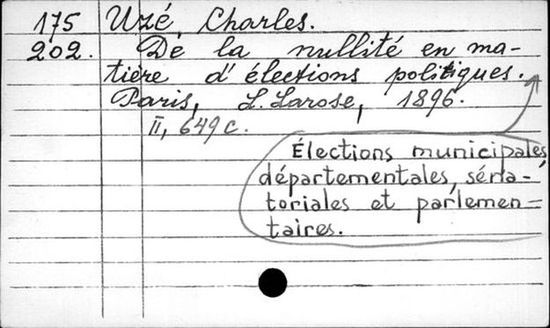 175 Uzé, Charles.
202. De la nullité en ma-
tière d'élections politiques.
Paris, L. Larose, 1896.
II, 649 c.
Élections municipales,
départementales, séna-
toriales et parlemen-
taires.